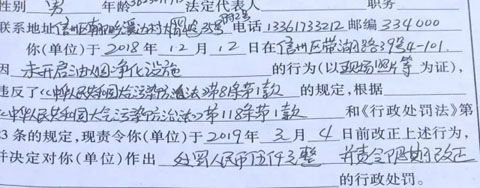 性别 男 年龄 法定代表人 职务
联系地址 信州区 电话 13361733212 邮编 334000
你(单位)于 2018 年 12 月 12 日在 信州区带湖路39号4-101.
因 未开启油烟净化设施 的行为(以 现场照片等 为证),
违反了《中华人民共和国大气污染防治法》第81条第1款 的规定,根据
《中华人民共和国大气污染防治法》第118条第1款 和《行政处罚法》第
3 条的规定,现责令你(单位)于 2019 年 3 月 4 日前改正上述行为,
并决定对你(单位)作出 处罚人民币伍仟元整 并责令限期改正
的行政处罚。